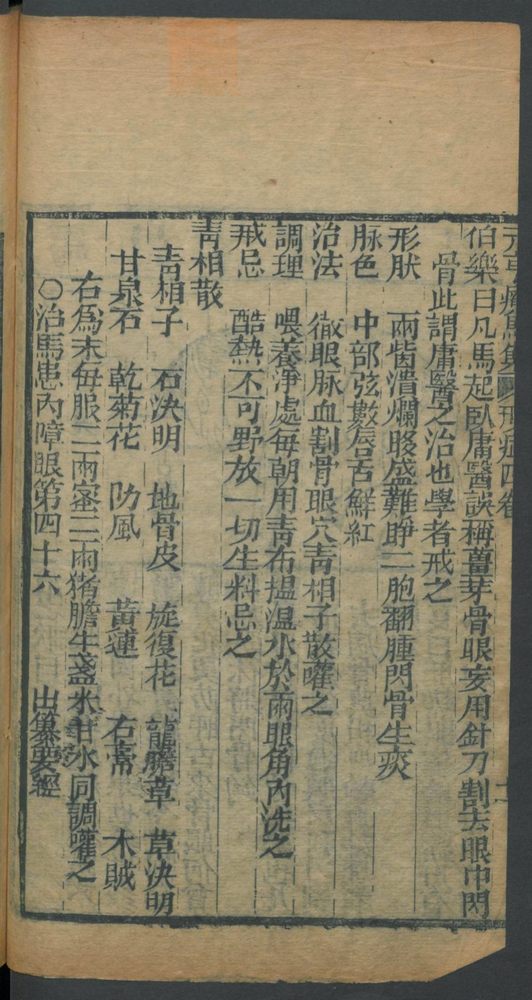 伯樂曰凡馬起臥庸醫誤稱薑芽骨眼妄用針刀割去眼中閃
骨此謂庸醫之治也學者戒之
形狀　兩眥潰爛䀹盛難睜二胞翻腫閃骨生瘀
脉色　中部弦數唇舌鮮紅
治法　徹眼脉血割骨眼穴靑相子散灌之
調理　喂養淨處每朝用靑布搵溫水於兩眼角內洗之
戒忌　酷熱不可野放一切生料忌之
靑相散
靑相子　石決明　地骨皮　旋復花　龍膽草　草決明
甘泉石　乾菊花　防風　黃蓮　石膏　木賊
右爲末每服二兩蜜三兩猪膽半盞米泔水同調灌之
○治馬患內障眼第四十六　出纂要經